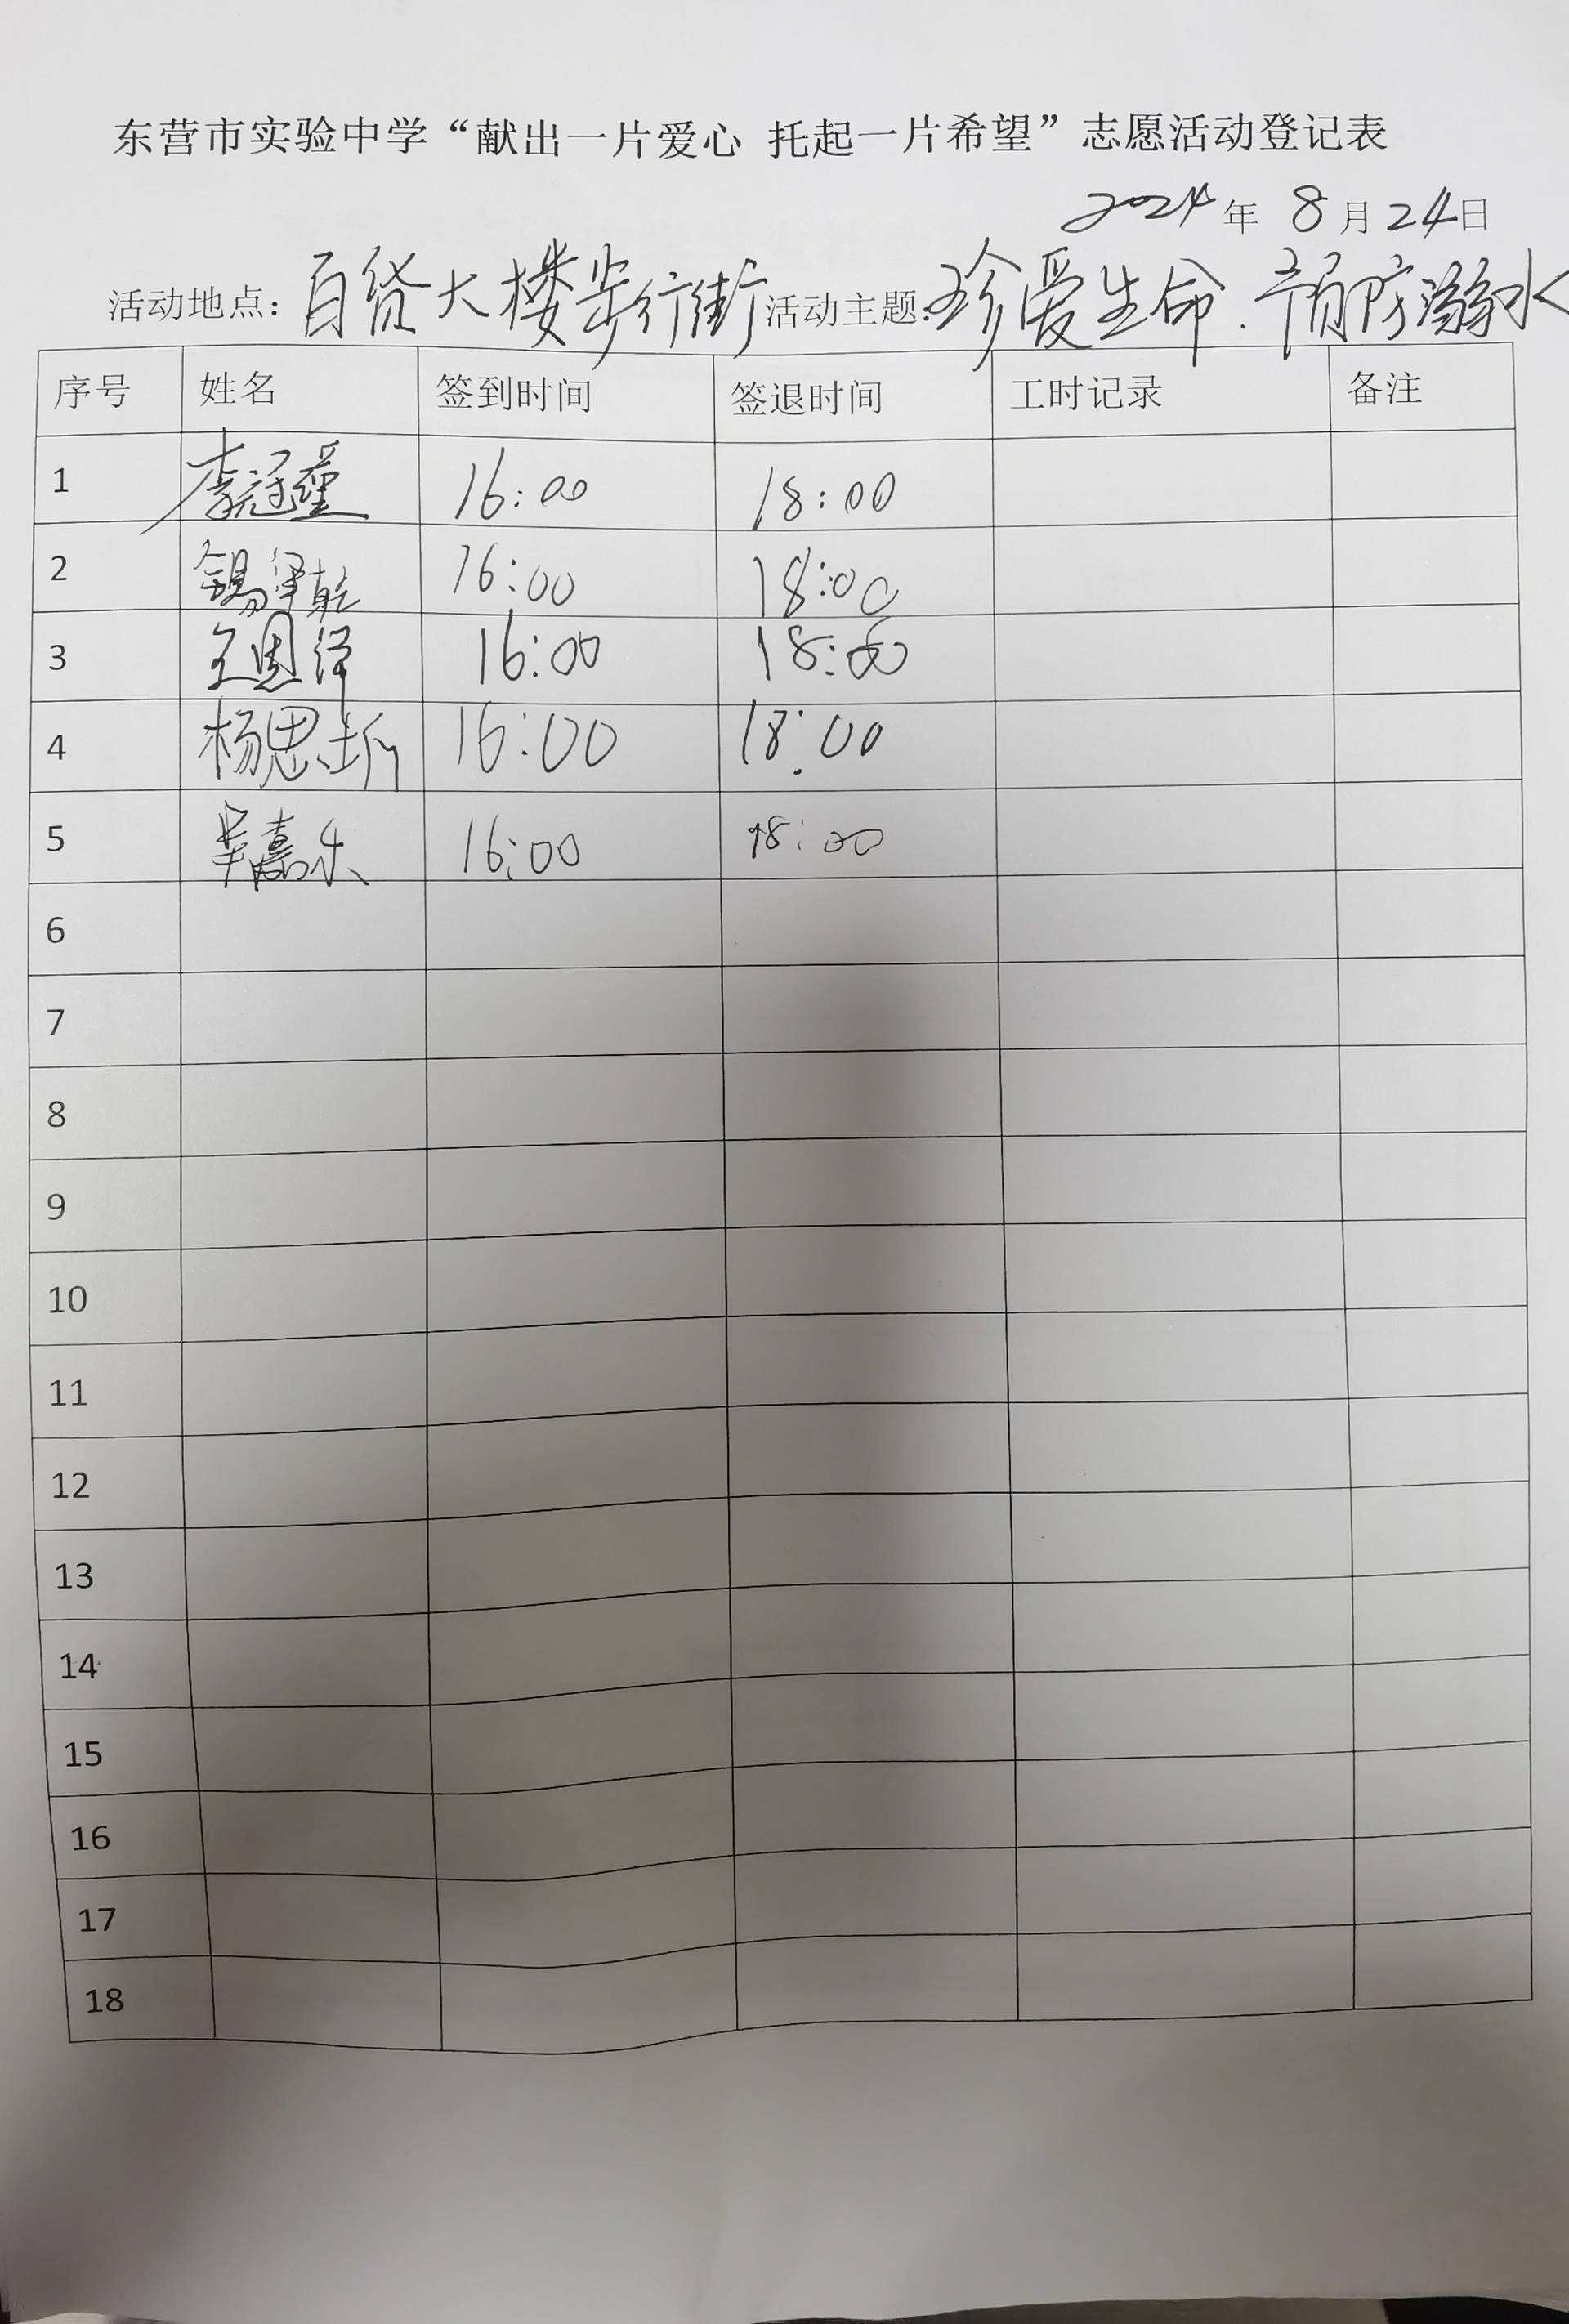 东营市实验中学“献出一片爱心 托起一片希望”志愿活动登记表
2024年 8月24日
活动地点：百货大楼步行街 活动主题：珍爱生命.预防溺水
序号 姓名 签到时间 签退时间 工时记录 备注
1 李冠 16:00 18:00
2 16:00 18:00
3 王恩泽 16:00 18:00
4 杨思圻 16:00 18:00
5 吴嘉乐 16:00 18:00
6
7
8
9
10
11
12
13
14
15
16
17
18